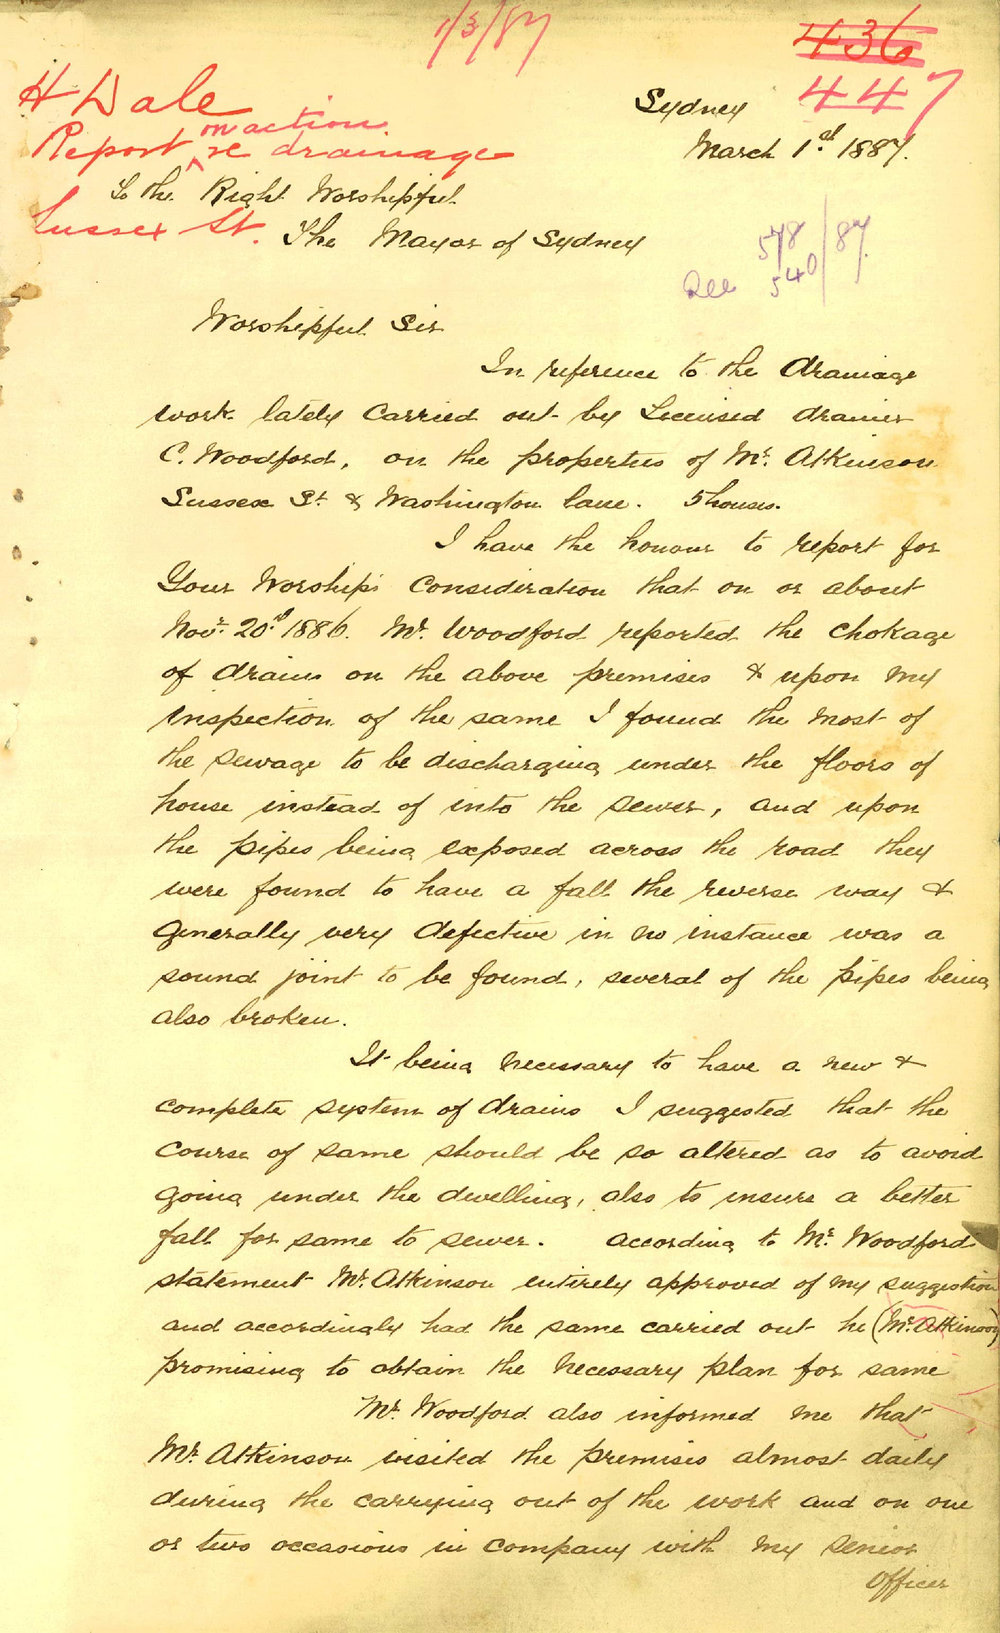 1/3/87
436
447
H Dale
Report on action re drainage
Sussex St.
Sydney
March 1st 1887.
To the Right Worshipful
The Mayor of Sydney
See 578/87
540
Worshipful Sir
In reference to the drainage
work lately carried out by Licensed drainer
C. Woodford, on the properties of Mr. Atkinson
Sussex St. & Washington lane. 5 houses.
I have the honour to report for
Your Worship's consideration that on or about
Novr. 20th 1886. Mr. Woodford reported the chokage
of drains on the above premises & upon my
inspection of the same I found the most of
the sewage to be discharging under the floors of
house instead of into the sewer, and upon
the pipes being exposed across the road they
were found to have a fall the reverse way &
generally very defective in no instance was a
sound joint to be found, several of the pipes being
also broken.
It being necessary to have a new &
complete system of drains I suggested that the
course of same should be so altered as to avoid
going under the dwelling, also to insure a better
fall for same to sewer. According to Mr. Woodford
statement Mr. Atkinson entirely approved of my suggestion
and accordingly had the same carried out he (Mr. Atkinson)
promising to obtain the necessary plan for same
Mr. Woodford also informed me that
Mr. Atkinson visited the premises almost daily
during the carrying out of the work and on one
or two occasions in company with my senior
Officer